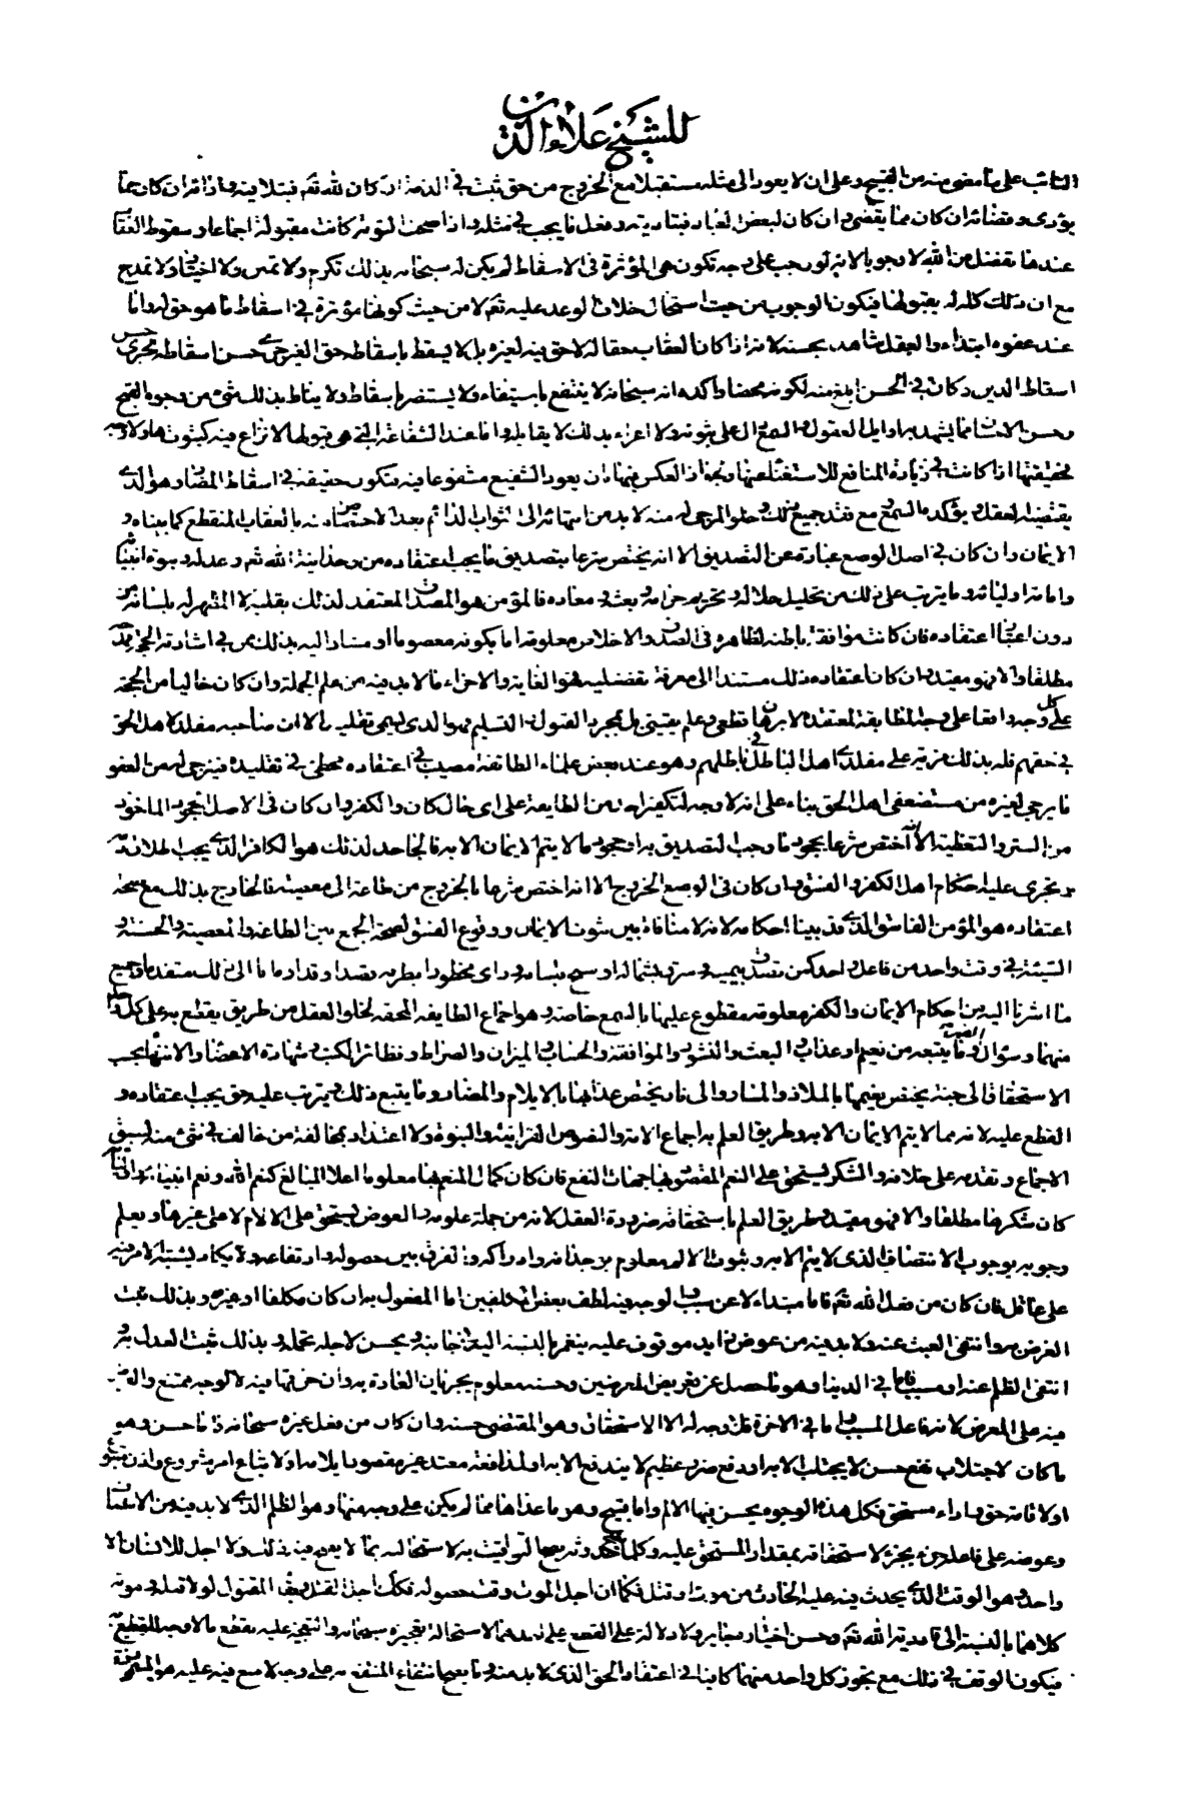 للشيخ علاء الدين
التائب على ما مضى منه من القبيح وعلى ان لا يعود الى مثله مستقبلا مع الخروج من حق ثبت في الذمة ان كان لله تعم فبتلافيه واذائه ان كان مما
يؤدى وقضائه ان كان مما يقضى وان كان لبعض لعباد فبتاديته وفعل ما يجب في مثله واذا صحت لتوبة كانت مقبولة اجماعا وسقوط العقاب
عندها تفضل من الله لا وجوبا لانه لو وجب على وجه تكون هي المؤثرة في الاسقاط لم يكن له سبحانه بذلك تكرم ولا تمنن ولا اختيار ولا تمدح
مع ان ذلك كله له بقبولها فيكون الوجوب من حيث استحال خلاف الوعد عليه تعم لا من حيث كونها مؤثرة في اسقاط ما هو حق له واما
عند عفوه ابتداء والعقل شاهد بحسنه لانه اذا كان العقاب حقا له لا حق فيه لغيره بل لا يسقط باسقاطه حق الغير جرى حسن اسقاطه مجرى حسن
اسقاط الدين وكان في الحسن ابلغ منه لكونه محضا واكده انه سبحانه لا ينتفع باستيفاء ولا يستضر باسقاط ولا يناط بذلك شئ من وجوه القبح
وحسن الاحسان مما يشهد به اوايل العقول والسمع دال على ثبوته ولا اغراء بذلك لا يقابله واما عند الشفاعة التي هي قبولها لا نزاع فيه كثبوتها ولا وجه
لحقيقتها اذا كانت في زيادة المنافع للاستغناء عنها وبجواز العكس فيها بان يعود الشفيع مشفوعا فيه فتكون حقيقة في اسقاط المضار وهو الذي
يقتضيه العقل ويؤكده السمع مع فقد جميع ذلك وخلو المرجى له منه لا بد من انتهائه الى الثواب الدائم بعد الاقتصاص منه بالعقاب المنقطع كما بيناه و
الايمان وان كان في اصل الوضع عبارة عن التصديق الا انه يختص شرعا بتصديق ما يجب اعتقاده من وحدانية الله تعم وعدله ونبوة انبيائه
وامامة اوليائه وما يترتب على ذلك من تحليل حلاله وتحريم حرامه وبعثه ومعاده فالمؤمن هو المصدق المعتقد لذلك بقلبه لا المظهر له بلسانه من
دون اعتبار اعتقاده فان كانت موافقة باطنه لظاهره في الصدق والاخلاص معلومة اما بكونه معصوما او مشارا اليه بذلك ممن في اشارته الحجة
مطلقا والا فهو مقيد وان كان اعتقاده ذلك مستندا الى معرفة تفصيلية هو الغاية والاجزاء فما لا بد فيه من علم الجملة وان كان خاليا من الحجة
على كل وجه واقعا على وجه المطابقة لمعتقده لا برهان قطعى وعلم يقيني بل مجرد القبول والتسليم فهو الذي يسمى تقليدا الا ان صاحبه مقلد لاهل الحق
في حقهم فله بذلك مزية على مقلدي اهل الباطل في باطلهم وهو عند بعض علماء الطائفة مصيب في اعتقاده مخطئ في تقليده فيرجى له من العفو
ما يرجى لغيره من مستضعفي اهل الحق بناء على انه لا وجه لتكفيرهم من الطايعة على اى حال كان والكفر وان كان في الاصل الجحود الماخوذ
من الستر والتغطية الا انه اختص شرعا بجحود ما وجب التصديق به او جحود ما لا يتم الايمان الا به فالجاحد لذلك هو الكافر الذي يجب اطلاقه
وتجرى عليه احكام اهل الكفر والفسق وان كان في الوضع الخروج الا انه اختص شرعا بالخروج من طاعة الى معصية فالخارج بذلك مع صحة
اعتقاده هو المؤمن الفاسق الذي قد بينا احكامه لانه لا منافاة بين ثبوت الايمان ووقوع الفسق لصحة الجمع بين الطاعة والمعصية والحسنة و
السيئة في وقت واحد من فاعل واحد كمن تصدق بيمينه وسرق بشماله او سبح بلسانه وراى محظورا بطرفه قصدا وقد اوما الى ذلك متقدما وجميع
ما اشرنا اليه من احكام الايمان والكفر معلومة مقطوع عليها بالسمع خاصة وهو اجماع الطايفة المحقة لخلو العقل من طريق يقطع به على كل واحد
منهما وسؤال القبر وما يتبعه من نعيم او عذاب والبعث والنشور والموافقة والحساب والميزان والصراط وتطائر الكتب وشهادة الاعضاء والانتهاء بحسب
الاستحقاق الى جنة يختص نعيمها بالملاذ والمسار والى نار يختص عذابها بالايلام والمضار وما يتبع ذلك ويترتب عليه حق يجب اعتقاده و
القطع عليه لانه مما لا يتم الايمان الا به وطريق العلم به اجماع الامة والنصوص القرانية والنبوة ولا اعتداد بمخالفة من خالف في شئ منه لسبق
الاجماع وتقدمه على خلافه والشكر يستحق على النعم المقصود بها جهات النفع فان كان كمال المنعم بها معلوما اعلا المبالغ كنعم الله ونعم انبيائه
كان شكرها مطلقا والا فهو مقيد وطريق العلم باستحقاقه ضرورة العقل لانه من جملة علومه والعوض يستحق على الالام لا على غيرها ويعلم
وجوبه بوجوب الانتصاف الذي لا يتم الا به وثبوت الالم معلوم بوجدانه وادراكه والفرق بين حصوله وارتفاعه ولا يكاد يشتبه الامر فيه
على عاقل فان كان من فعل الله تعم فاما مبتداء لا عن سبب لوجه فيه لطف بعض المكلفين اما المفعول به ان كان مكلفا او غيره وبذلك ثبت
الغرض به وانتفى العبث عنه ولا بد فيه من عوض زايد موقوف عليه ينغمر بالنسبة اليه جانبه ويحسن لاجله تحمله وبذلك ثبت العدل به و
انتفى الظلم عنه او مسببا فاما في الدنيا وهو ما حصل عن تعريض المعرضين وحسنه معلوم بجريان العادة به وان خرقها فيه لا لوجه ممتنع والعوض
فيه على المعرض لانه فاعل السبب واما في الاخرة فلا وجه له الا الاستحقاق وهو المقتضى حسنه وان كان من فعل غيره سبحانه فاما حسن وهو
ما كان لاجتلاب نفع حسن لا يجتلب الا به او دفع ضرر عظيم لا يندفع الا به او لمدافعة معتد غير مقصود ايلامه او لاتباع امر مشروع واذن متبوع
او لاقامة حق واداء مستحق فكل هذه الوجوه يحسن فيها الالم واما قبيح وهو ما عداها مما لم يكن على وجه منها وهو الظلم الذي لا بد فيه من الانتصاف
وعوضه على فاعله
واحد وهو الوقت الذي يحدث فيه عليه الحادث من موت او قتل فكما ان اجل الموت وقت حصوله فكذلك اجل القتل وبقاء المقتول لولا قتله وموته
كلاهما بالنسبة الى قادرية الله تعم وحسن اختياره جايز ولا دلالة على القطع على احدهما لاستحالة تعجيزه سبحانه والتحجير عليه بقطع ما لا وجه للقطع به
فيكون الوقف في ذلك مع تجويز كل واحد منهما كافيا في اعتقاد الحق الذي لا بد منه